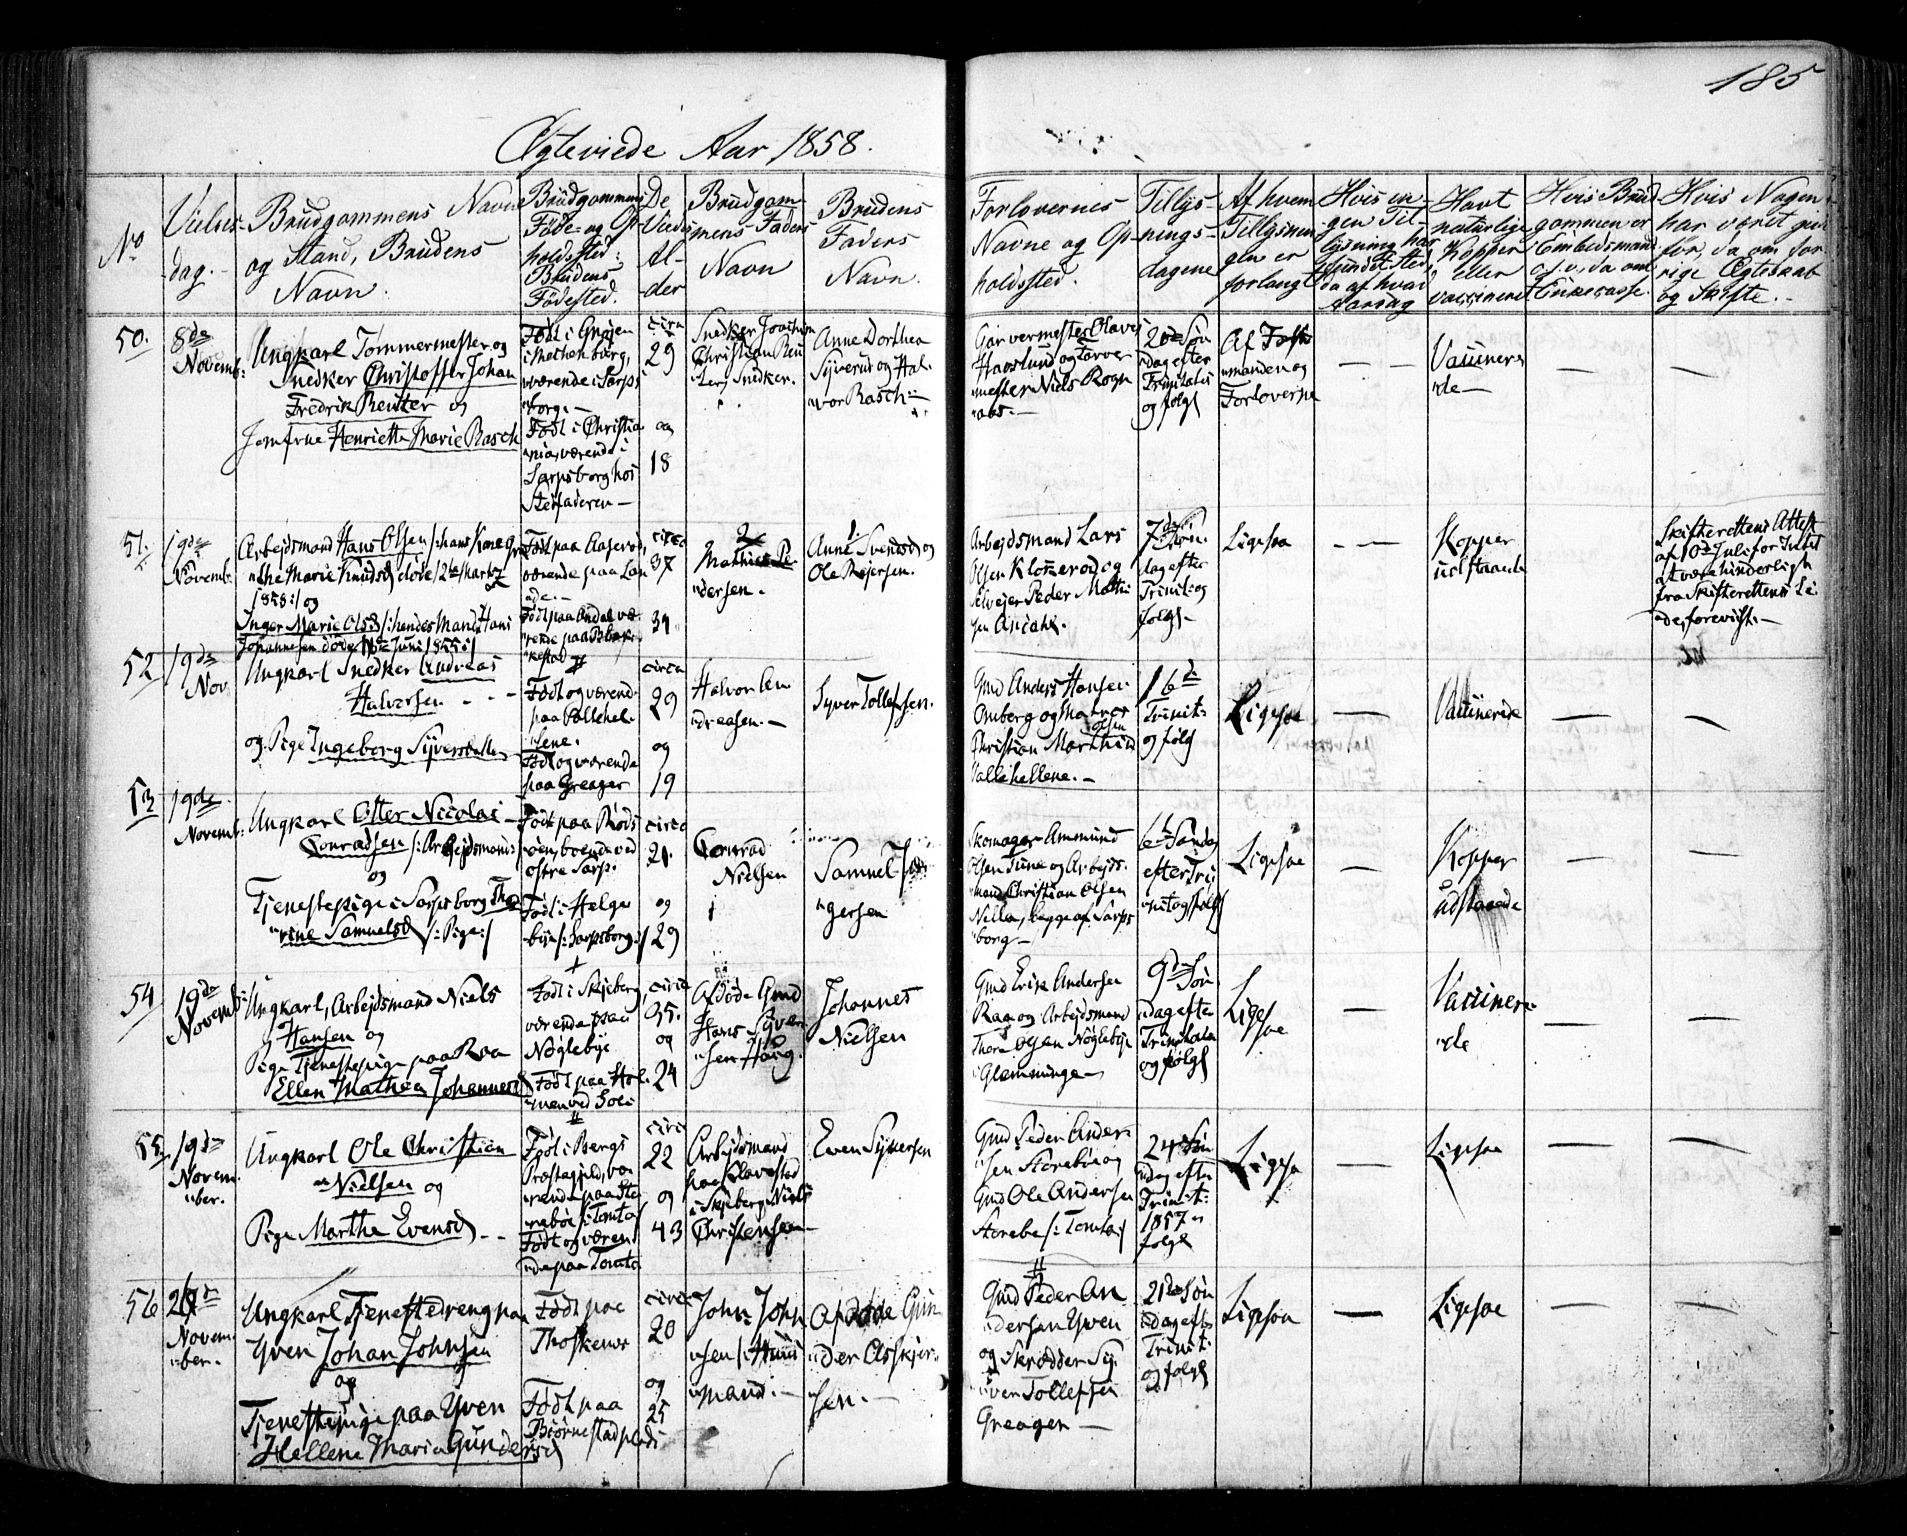 185
Ægteviede Aar 1858.
No
Vielses-
dag.
Brudgommens Navn
og Stand, Brudens
Navn.
Brudgommens
Føde- og Op-
holdssted:
Brudens
Fødested.
De
Viedes
Al-
der
Brudgom-
mens Faders
Navn
Brudens
Faders
Navn.
Forlovernes
Navne og Op-
holdssted.
Tillys-
nings-
dagene
Af hvem
Tillysnin-
gen er
forlangt
Hvis in-
gen Til-
lysning har
fundet Sted,
da af hvad
Aarsag
Havt
naturlige
Kopper
eller
vaccineret
Hvis Brud-
gommen er
Embedsmand
o.s.v., da om
Enkecasse.
Hvis Nogen
har været gift
før, da om for-
rige Ægteskab
og Skifte.
50.
8de
Novemb:
Ungkarl Tømmermester og
Snedker Christoffer Johan
Fredrik Reutzer og
Jomfrue Henriette Marie Rasch
Født i
værende i Sarps-
borg.
Født i Christia-
nia, værende i
Sarpsborg hos
Stedfaderen
circa
29
og
18
Snedker Joachim
Christian
Snedker.
Anne Dorthea
Syverud og Hal-
vor Rasch
Garvermester Olaves
Haaslund og Farver-
mester Niels Rogn-
20de Søn-
dag efter
Trinitatis
og følg
Af Forlov-
manden og
Forloverne
Vaccinere-
de
51.
19de
Novemb.
Arbejdsmand Hans Olsen /: hans Kone
Marie Knudsd døde 12te Marts
1858:/ og
Inger Marie Olsd /: hendes Mand Hans
Johannesen døde Juni 1855:/
Født paa Aaserød,
værende paa Lan-
de.
Født paa Andal væ-
rende paa
circa
37
34.
2
Mathias Pe-
dersen.
1
Anne Svendsd og
Ole Rejersen.
Arbejdsmand Lars
Olsen Klokkerød og
Selvejer Peder Mathi-
sen Andahl.
7de Søn-
dag efter
Trinit: og
følg
Ligesaa
Kopper
udstaaende
Skifterettens Attest
af 10de Juli for Intet
at være hinderligh
fra Skifterettens Si-
de forevist.
52
19de
Nov
Ungkarl Snedker Andreas
Halvorsen
og Pige Ingeborg Syversdatter
Født og værende
paa Vallehel-
lene.
Født og værende
paa Greager
circa
29
og
19
Halvor An-
dreasen.
Syver Tollefsen.
Gmd Anders Hansen
Omberg og Matros
Christian Mathias Olsen
Vallehellene.
16de
Trinit:
og følg
Ligesaa
Vaccinerede
53
19de
Novemb:
Ungkarl Otter Nicolai
Conradsen /: Arbejdsmand:/
og
Tjenestepige i Sarpsborg
Samuelsd /: Pige:/
Født paa
øen, boende ved
østre Sarp.
Født i Helge-
bye /: Sarpsborg:/
circa
21.
og
29
Conrad
Nielsen
Samuel Jør-
gersen
Skomager Ammund
Olsen Tune og Arbejds-
mand Christian Olsen
begge af Sarps-
borg
6te Søndag
efter Tri-
nit og følg
Ligesaa
Kopper
udstaaede
54
19de
Novemb:
Ungkarl, Arbejdsmand Niels
Hansen og
Pige Tjenestepige paa Raa
Ellen Mathea Johannesd
Født i Skjeberg,
værende paa
Nøglebye
Født paa Hol-
men ved Soli
circa
35.
og
24
Afdøde Gmd
Hans Syver-
sen Haug.
Johannes
Nielsen
Gmd Erik Andersen
Raa og Arbejdsmand
Thor Olsen Nøglebye
i Glemminge
9de Søn-
dag efter
Trinitatis
og følg
Ligesaa
Vaccinere-
de
55
19de
Novem-
ber.
Ungkarl Ole Christian
Nielsen og
Pige Marthe Evensd
Født i Bergs
Præstegjeld, væ-
rende paa Ste-
nebøe /: Tomta
Født og væren-
de paa Tomta
circa
22
og
43
Arbejdsmand
paa Klavestad
i Skjeberg Niels
Christensen
Even Syversen
Gmd Peder Ander-
sen Stenebøe og
Gmd Ole Andersen
Stenebø /: Tomta:/
24 Søn-
dag efter
Trinit:
1857 og
følg
Ligesaa
Ligesaa
56
Novem-
ber.
Ungkarl Tjenestedreng paa
Yven Johan Johnsen
og
Tjenestepige paa Yven
Hellene Maria Gundersd
Født paa
Født paa
Bjørnestad plads
circa
20
og
25
John John-
sen /: Huus-
mand.
Afdøde Gun-
der Askjer-
sen.
Gmd Peder An-
dersen Yven
og Skrædder Sy-
ver Tollefsen
Greager
21de Søn-
dag eft.
Trinit:
og følg
Ligesaa
Ligesaa